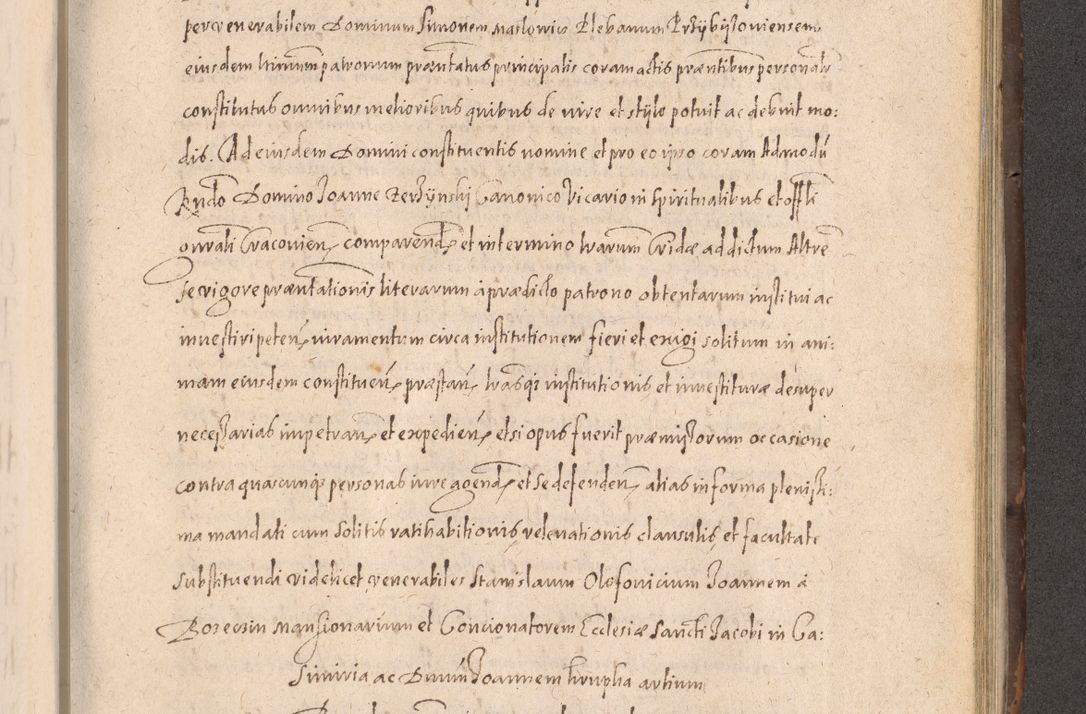 per venerabilem Dominum Simonem Maslowic Plebanum Przybysloviensem
eiusdem ltimum patronum præntatus principalis coram actis præntibus personalr
constitutus omnibus melioribus quibus de iure et stylo potuit ac debuit mo:
dis. Ad eiusdem Domini constituentis nomine et pro eo ipso coram Admodū
Rndo Domino Joanne Zerzynski Canonico Vicario in spiritualibus et offli
gnrali Cracovien comparend et in termino lrarum Cridæ addictum Altre
se vigore præntationis literarum à prædicto patrono obtentarum institui ac
investiri peten iuramentum circa institutionem fieri et exigi solitum in ani:
mam eiusdem constituen præstan lrasq; institutionis et investituræ desuper
necessarias impetran et expedien et si opus fuerit præmissorum occasione
contra quascunq; personas iure agend et se defenden alias in forma plenissi:
ma mandati cum solitis ratihabitionis relevationis clausulis et facultate
substituendi videlicet venerabiles Stanislaum Olofovicium Joannem à
Borzecin Mansionarium et Concionatorem Ecclesiæ Sancti Jacobi in Ca:
simiria ac Dnum Joannem Krupka artium